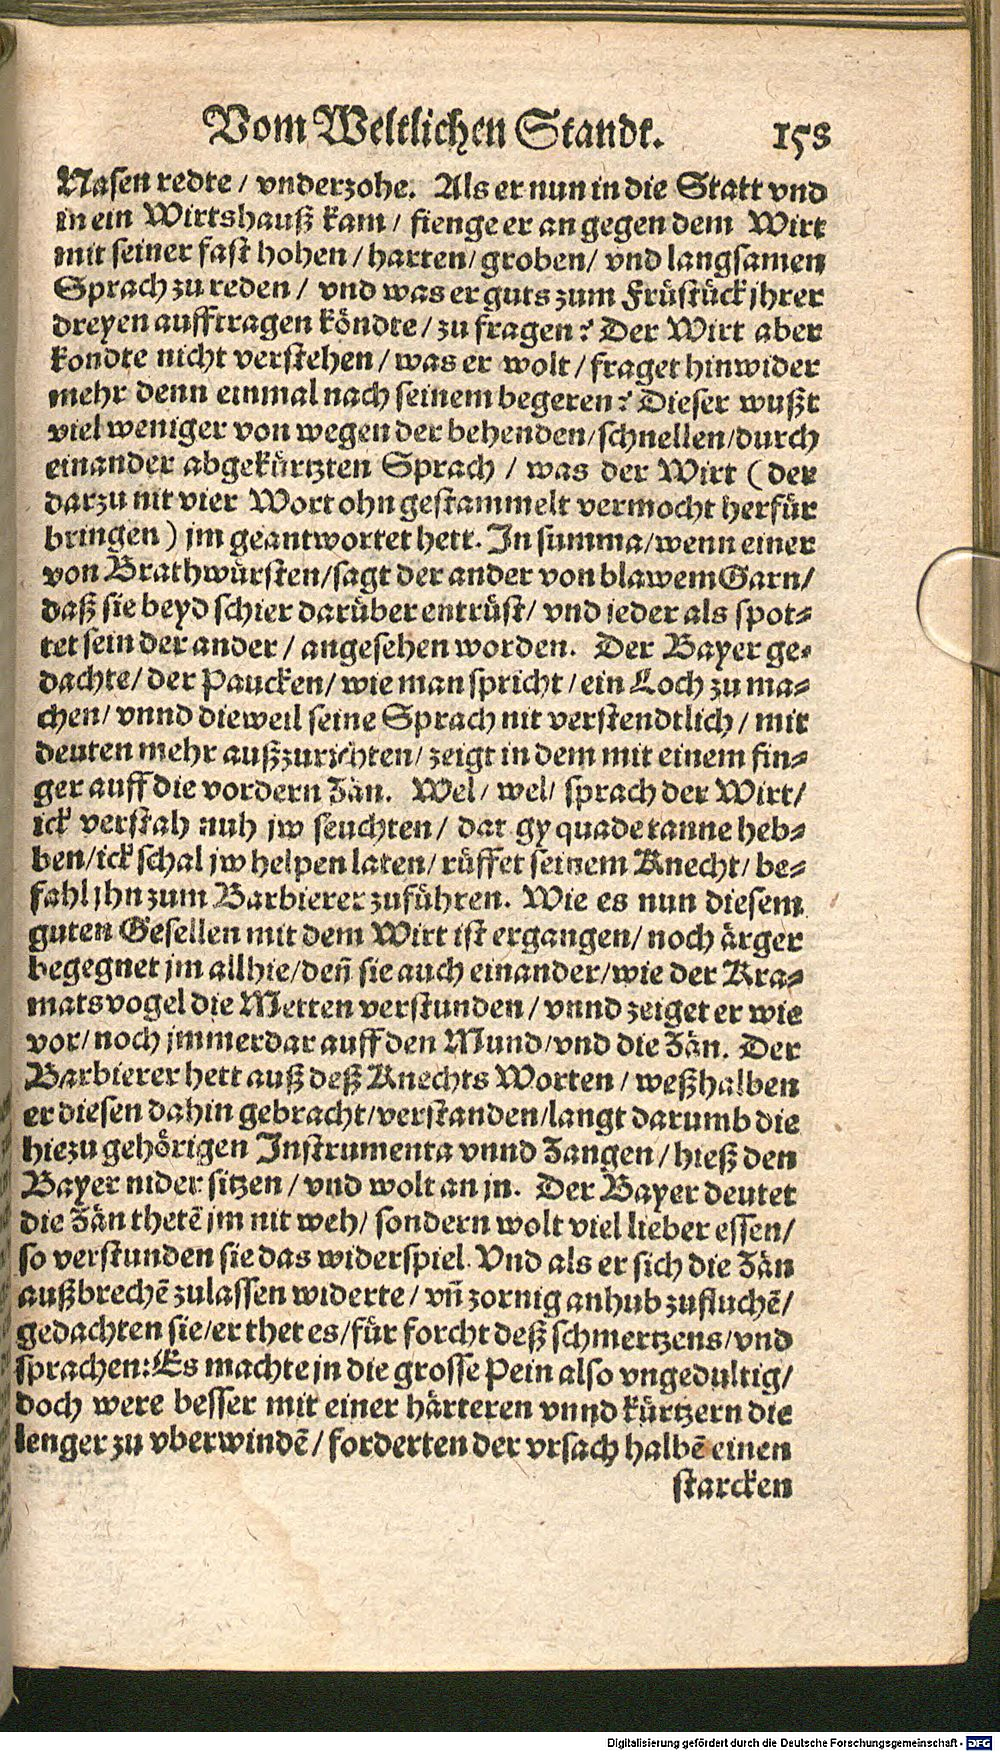 Vom Weltlichen Standt. 158
Nasen redte / vnderzohe. Als er nun in die Statt vnd
in ein Wirtshauß kam / fienge er an gegen dem Wirt
mit seiner fast hohen / harten / groben / vnd langsamen
Sprach zu reden / vnd was er guts zum Früstück jhrer
dreyen aufftragen köndte / zu fragen? Der Wirt aber
kondte nicht verstehen / was er wolt / fraget hinwider
mehr denn einmal nach seinem begeren? Dieser wußt
viel weniger von wegen der behenden / schnellen / durch
einander abgekürtzten Sprach / was der Wirt (der
darzu nit vier Wort ohn gestammelt vermocht herfür
bringen) jm geantwortet hett. In summa / wenn einer
von Brathwürsten / sagt der ander von blawem Garn /
daß sie beyd schier darüber entrüst / vnd jeder als spot-
tet sein der ander / angesehen worden. Der Bayer ge-
dachte / der Paucken / wie man spricht / ein Loch zu ma-
chen / vnnd dieweil seine Sprach nit verstendtlich / mit
deuten mehr außzurichten / zeigt in dem mit einem fin-
ger auff die vordern Zän. Wel / wel / sprach der Wirt /
ick verstah nuh jw seuchten / dat gy quade tanne heb-
ben / ick schal jw helpen laten / rüffet seinem Knecht / be-
fahl jhn zum Barbierer zuführen. Wie es nun diesem
guten Gesellen mit dem Wirt ist ergangen / noch ärger
begegnet jm allhie / deñ sie auch einander / wie der Kra-
matsvogel die Metten verstunden / vnnd zeiget er wie
vor / noch jmmerdar auff den Mund / vnd die Zän. Der
Barbierer hett auß deß Knechts Worten / weßhalben
er diesen dahin gebracht / verstanden / langt darumb die
hiezu gehörigen Instrumenta vnnd Zangen / hieß den
Bayer nider sitzen / vnd wolt an jn. Der Bayer deutet
die Zän thetē jm nit weh / sondern wolt viel lieber essen /
so verstunden sie das widerspiel. Vnd als er sich die Zän
außbrechē zulassen widerte / vñ zornig anhub zufluchē /
gedachten sie / er thet es / für forcht deß schmertzens / vnd
sprachen: Es machte jn die grosse Pein also vngedultig /
doch were besser mit einer härteren vnnd kürtzern die
lenger zu vberwindē / forderten der vrsach halbē einen
starcken
Digitalisierung gefördert durch die Deutsche Forschungsgemeinschaft - DFG